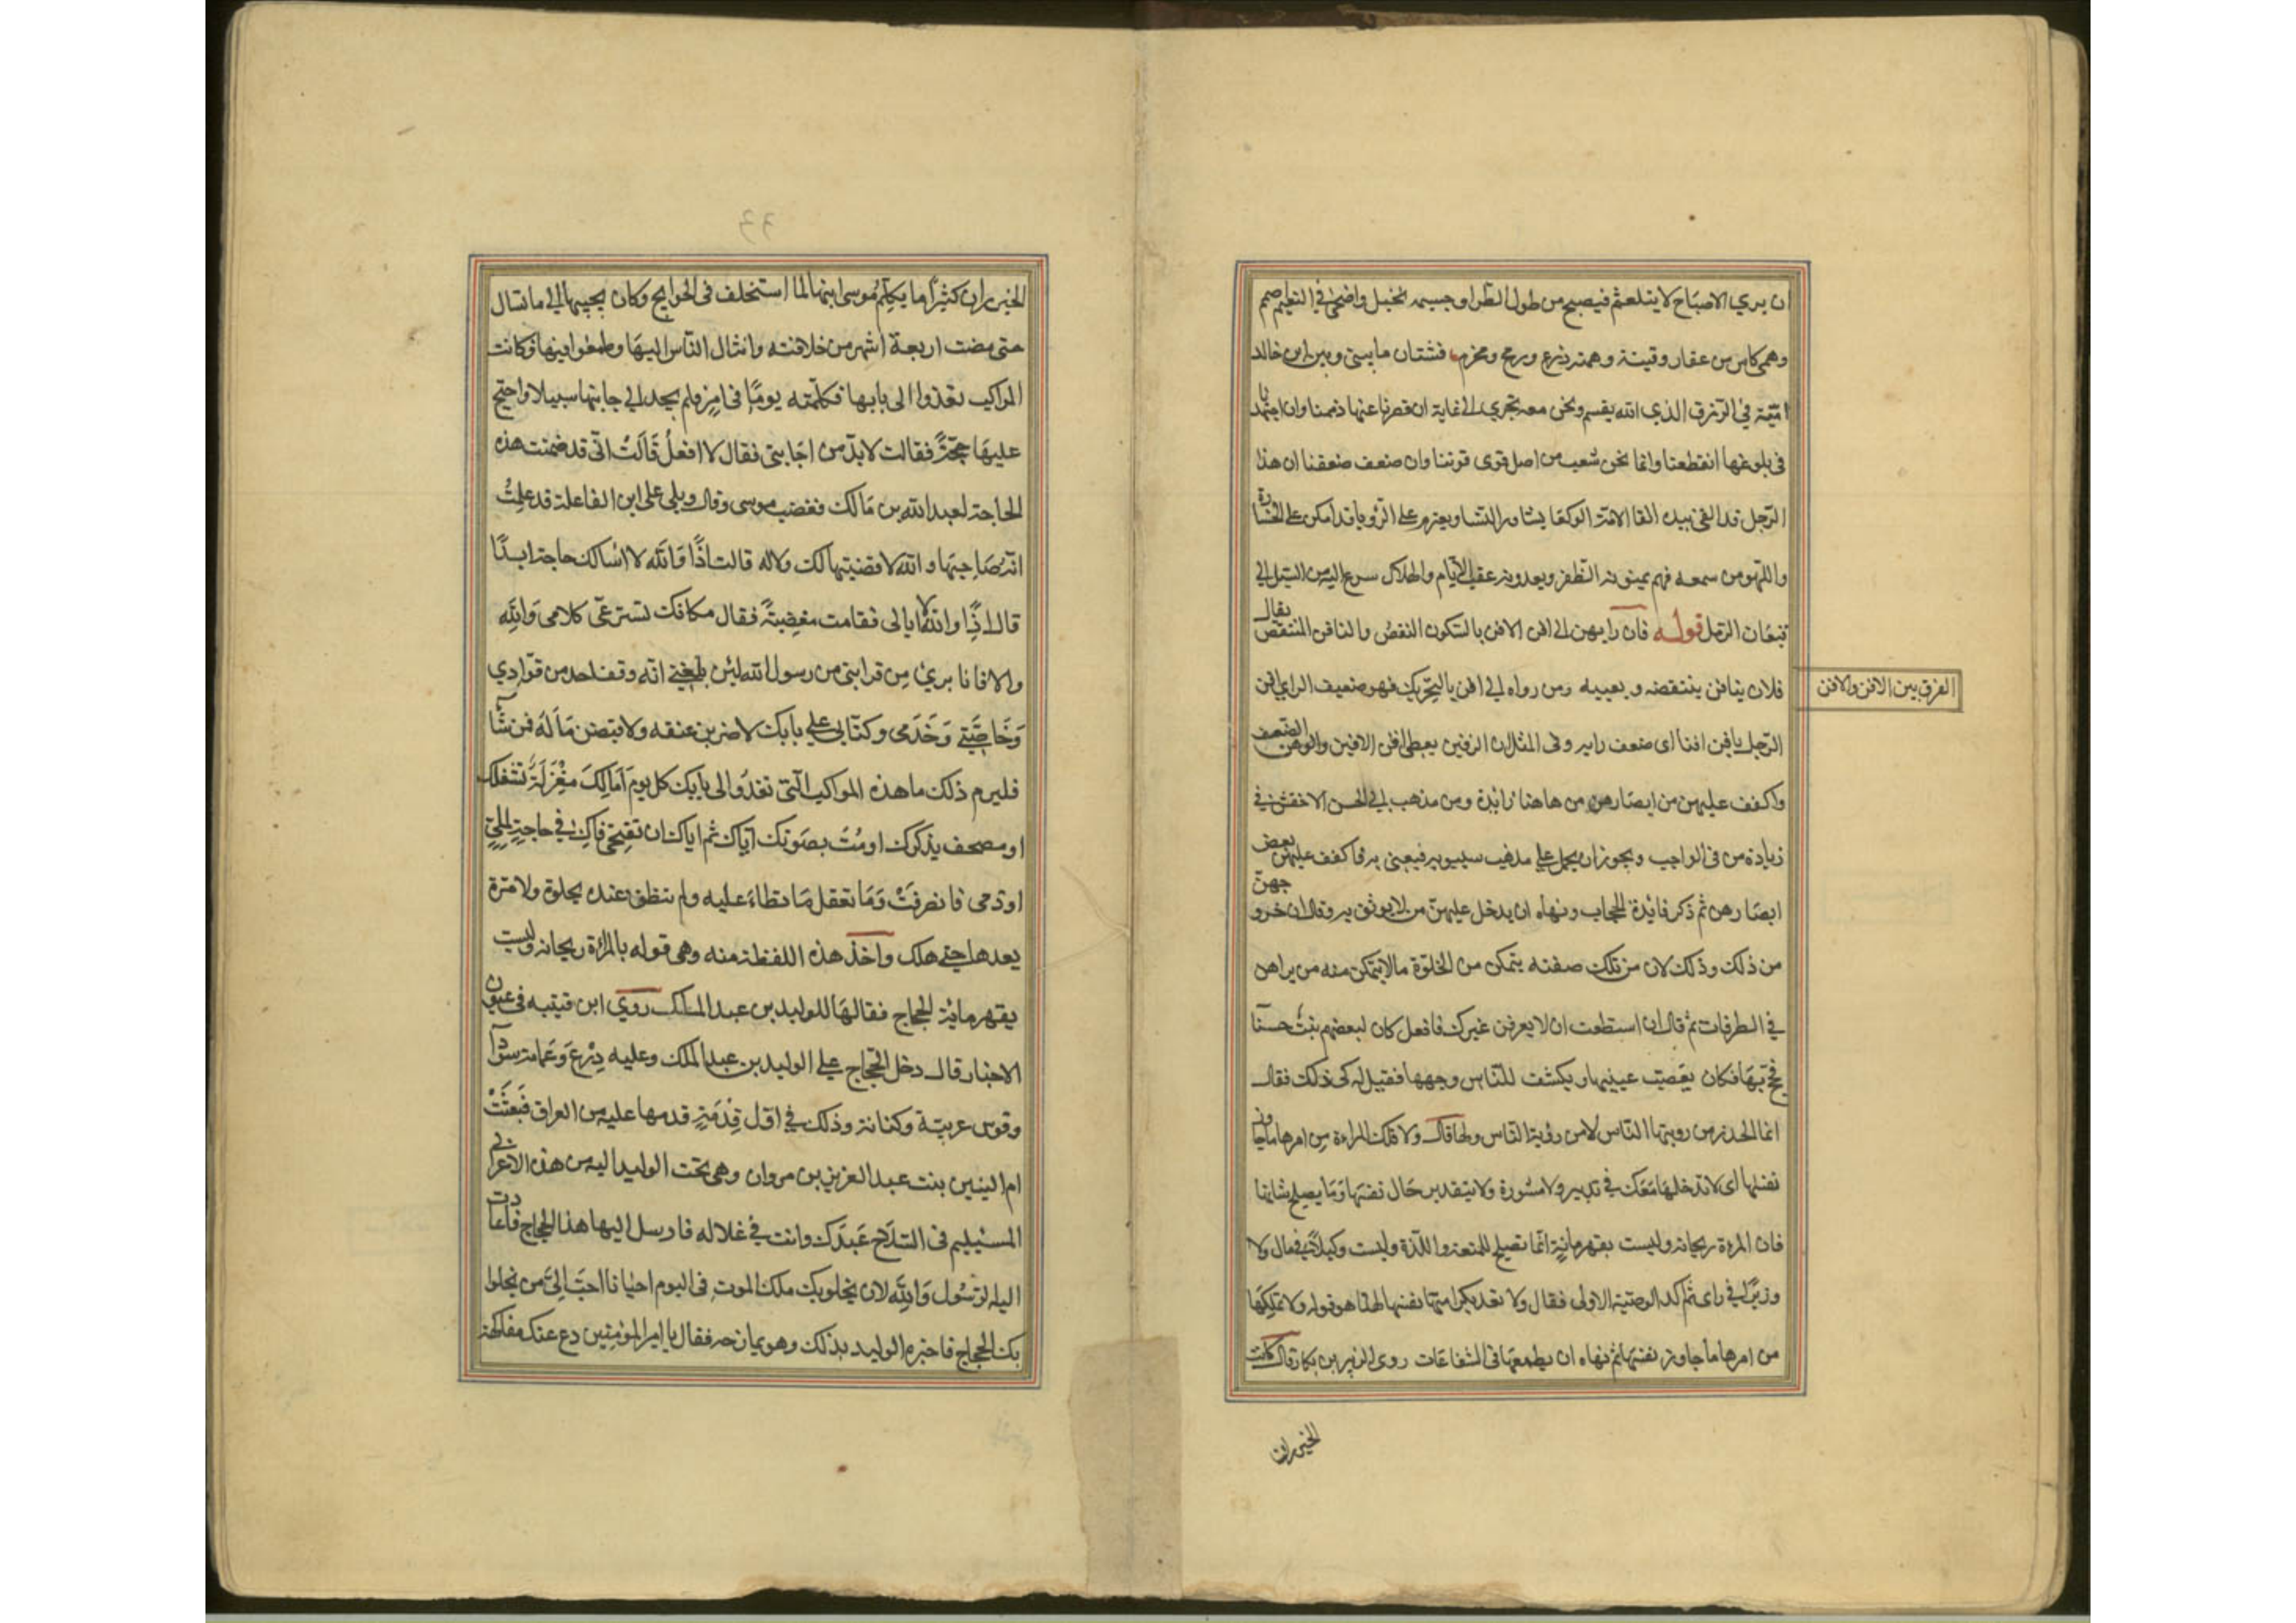 ان يرى الاصباح لا يتلعثم فيصبح من طول الطراد وجسمه نحيل واضحى في النعيم اصمم
وهمى كاس من عقار وقينة وهمته درع ورمح ومخذم فشتان ما بيني وبين ابن خالد
امية في الرزق الذي الله يقسم ونحن معه نجري الى غاية ان قصرنا عنها ذممنا وان اجتهدنا
في بلوغها انقطعنا وانما نحن شعب من اصل ان قوى قوينا وان ضعف ضعفنا ان هذا
الرجل قد القى بيده القا الامة الوكعا يشاور النسا ويعتزم على الرويا قد امكن اهل الخسارة
واللهو من سمعه فهم يمنونه الظفر ويعدونه عقب الايام والهلاك اسرع اليه من السيل الى
قيعان الرمل قوله فان رايهن الى افن الافن بالسكون النقص والمتافن المنتقص يقال
فلان يتافن ينتقصه ويعيبه ومن رواه الى افن بالتحريك فهو ضعيف الراي افن
الفرق بين الافن والافن
الرجل يافن افنا اى ضعف رايه وفى المثل ان الرقين يغطى افن الافين والوهن الضعف
واكفف عليهن من ابصارهن من هاهنا زايدة ومن مذهب ابي الحسن الاخفش في
زيادة من فى الواجب ويجوز ان يحمل على مذهب سيبويه فيعنى به فاكفف عليهن بعض
ابصارهن ثم ذكر فائدة الحجاب ونهاه ان يدخل عليهن من لا يوثق به وقال ان خروجهن
من ذلك وذلك لان من تلك صفته يتمكن من الخلوة ما لا يتمكن منه من يراهن
في الطرقات ثم قال ان استطعت ان لا يعرفن غيرك فافعل كان لبعضهم بنت حسنا
فحج بها فكان يعصب عينيها ويكشف للناس وجهها فقيل له في ذلك فقال
انما الحذر من رويتها الناس لا من رؤية الناس ولها قال ولا تملك المراءة من امرها ما جاوز
نفسها اى لا تدخلها معك في تدبير ولا مشورة ولا يتعدين حال نفسها وما يصلح شانها
فان المرءة ريحانة وليست بقهرمانة انما تصلح للمتعة واللذة وليست وكيلا في مال ولا
وزيرا في راى ثم اكد الوصية الاولى فقال ولا تعد بكرامتها نفسها هذا هو قوله ولا تملكها
من امرها ما جاوز نفسها ثم نهاه ان يطمعها فى الشفاعات روى الزبير بن بكار قال كانت
الخيزران
الخيزران كثيرا ما يكلم موسى ابنها لما استخلف فى الحوايج وكان يجيبها الى ما تسال
حتى مضت اربعة اشهر من خلافته وانثال الناس اليها وطمعوا فيها فكانت
المواكب تغذوا الى بابها فكلمته يوما فى امر فلم يجد الى اجابتها سبيلا واحتج
عليها بحجة فقالت لا بد من اجابتى فقال لا افعل قالت انى قد ضمنت هذه
الحاجة لعبد الله بن مالك فغضب موسى وقال ويلى على ابن الفاعلة قد علمت
انه صاحبها والله لا قضيتها لك ولا له قالت اذا والله لا اسالك حاجة ابدا
قال اذا والله لا ابالى فقامت مغضبة فقال مكانك تستوعى كلامى والله
والا فانا برئ من قرابتى من رسول الله لئن بلغني انه وقف احد من قوادي
وخاصتي وخدمى وكتابى على بابك لاضربن عنقه ولاقبضن ماله فمن شا
فليرم ذلك ما هذه المواكب التى تغدو الى بابك كل يوم اما لك مغزلة تشغلك
او مصحف يذكرك او بيت يصونك اياك ثم اياك ان تفتحى فاك في حاجة لملي
او ذمى فانصرفت وما تعقل ما تطاء عليه ولم تنطق عنده بحلوة ولا مرة
بعدها حتى هلك واخذ هذه اللفظة منه وهى قوله المراءة ريحانة وليست
بقهرمانة الحجاج فقالها للوليد بن عبد الملك روي ابن قتيبة فى عيون
الاخبار قال دخل الحجاج على الوليد بن عبد الملك وعليه درع وعمامة سودآ
وقوس عربية وكنانة وذلك في اول قدمة قدمها عليه من العراق فبعثت
ام البنين بنت عبد العزيز بن مروان وهى تحت الوليد اليه من هذا الاعرابي
المستليم فى السلاح عندك وانت في غلاله فارسل اليها هذا الحجاج فاعادت
اليه الرسول والله لان يخلو بك ملك الموت فى اليوم احيانا احب الي من يخلوا
بك الحجاج فاخبره الوليد بذلك وهو يمازحه فقال يا امير المؤمنين دع عنك مفاكهة